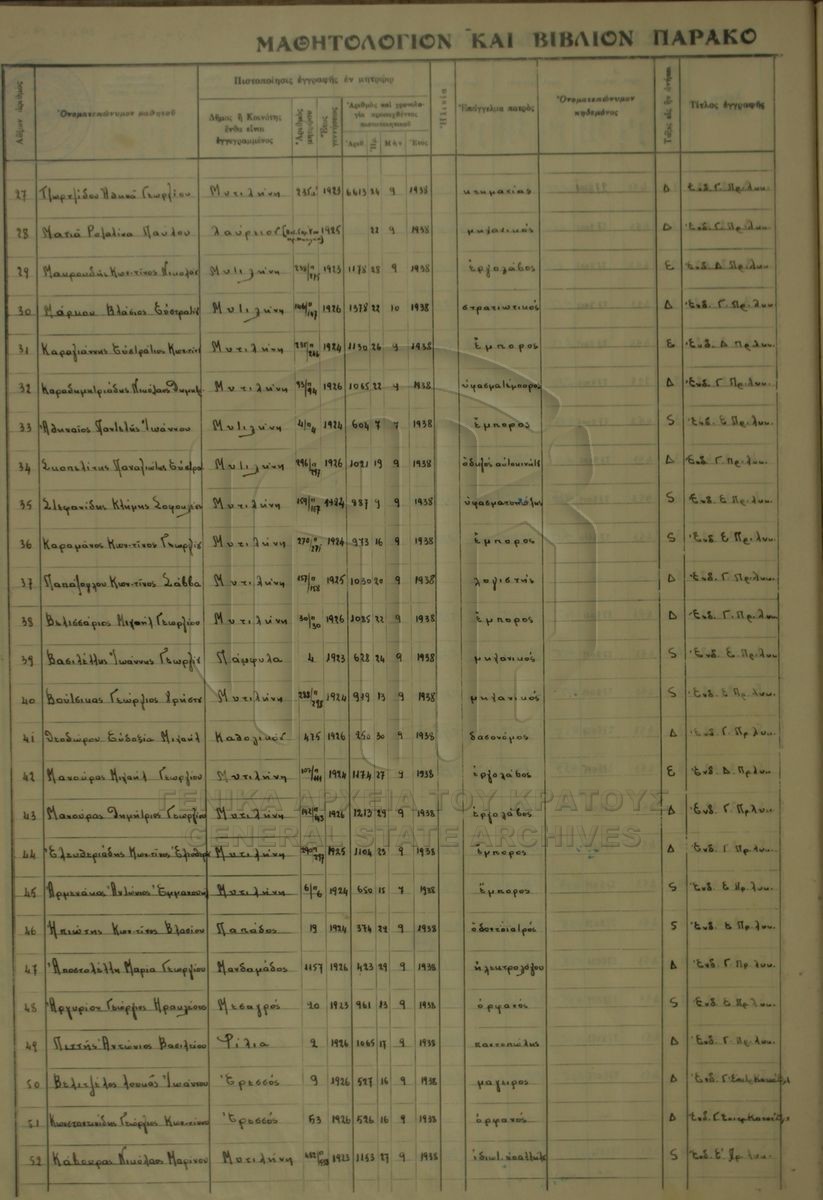 ΜΑΘΗΤΟΛΟΓΙΟΝ ΚΑΙ ΒΙΒΛΙΟΝ ΠΑΡΑΚΟ
Αὔξων ἀριθμὸς Ὀνοματεπώνυμον μαθητοῦ Πιστοποίησις ἐγγραφῆς ἐν μητρῴῳ Ἡλικία Ἐπάγγελμα πατρὸς Ὀνοματεπώνυμον κηδεμόνος Τάξις εἰς ἣν ἀνήκει Τίτλος ἐγγραφῆς
Δῆμος ἢ Κοινότης ἔνθα εἶναι ἐγγεγραμμένος Ἀριθμὸς μητρῴου Ἔτος γεννήσεως Ἀριθμὸς καὶ χρονολογία προσαχθέντος πιστοποιητικοῦ
Ἀριθ. Ἡμ. Μὴν Ἔτος
27 Ἀθηνᾶ Γεωργίου Μυτιλήνη 1923 6613 24 9 1938 κτηματίας Δ Ἐνδ. Γ. Πρ. Λυκ.
28 Παύλου Λαύριον 1925 22 9 1938 μηχανικός Δ Ἐνδ. Γ. Πρ. Λυκ.
29 Μαυρουδῆς Κων/τῖνος Νικολάου Μυτιλήνη 1923 1178 28 9 1938 ἐργολάβος Ε Ἐνδ. Δ. Πρ. Λυκ.
30 Μάρκου Βλάσιος Εὐστρατίου Μυτιλήνη 146/147 1926 1378 22 10 1938 στρατιωτικός Δ Ἐνδ. Γ. Πρ. Λυκ.
31 Καραγιάννης Εὐστράτιος Κων/τίνου Μυτιλήνη 1924 1130 26 9 1938 ἔμπορος Ε Ἐνδ. Δ. Πρ. Λυκ.
32 Καραδημητριάδης Νικόλαος Δημητρ. Μυτιλήνη 93/94 1926 1065 22 9 1938 ὑφασματέμπορος Δ Ἐνδ. Γ. Πρ. Λυκ.
33 Ἀθηναῖος Παντελῆς Ἰωάννου Μυτιλήνη 4/4 1924 604 7 7 1938 ἔμπορος S Ἐνδ. Ε. Πρ. Λυκ.
34 Σκοπελίτης Παναγιώτης Εὐστρα Μυτιλήνη 296/297 1926 1021 19 9 1938 ὁδηγός αὐτοκινήτ Δ Ἐνδ. Γ. Πρ. Λυκ.
35 Στεφανίδης Κλήμης Σοφοκλέου Μυτιλήνη 1924 987 9 9 1938 ὑφασματοπώλης S Ἐνδ. Ε. Πρ. Λυκ.
36 Καραμάνος Κων/τῖνος Γεωργίου Μυτιλήνη 270/271 1924 973 16 9 1938 ἔμπορος S Ἐνδ. Ε. Πρ. Λυκ.
37 Παπάζογλου Κων/τῖνος Σάββα Μυτιλήνη 157/158 1925 1030 20 9 1938 λογιστής Δ Ἐνδ. Γ. Πρ. Λυκ.
38 Βελισσάριος Μιχαήλ Γεωργίου Μυτιλήνη 30/30 1926 1085 22 9 1938 ἔμπορος Δ Ἐνδ. Γ. Πρ. Λυκ.
39 Βασιλέλλης Ἰωάννης Γεωργίου Πάμφυλα 4 1923 628 24 9 1938 μηχανικός S Ἐνδ. Ε. Πρ. Λυκ.
40 Βούτσικας Γεώργιος Χρήστου Μυτιλήνη 1924 939 13 9 1938 μηχανικός S Ἐνδ. Ε. Πρ. Λυκ.
41 Θεοδώρου Εὐδοξία Μιχαήλ 475 1926 250 30 9 1938 δασονόμος Δ Ἐνδ. Γ. Πρ. Λυκ.
42 Μανούρας Μιχαήλ Γεωργίου Μυτιλήνη 1924 1174 27 9 1938 ἐργολάβος Ε Ἐνδ. Δ. Πρ. Λυκ.
43 Μανούρας Δημήτριος Γεωργίου Μυτιλήνη 1926 1213 29 9 1938 ἐργολάβος Δ Ἐνδ. Γ. Πρ. Λυκ.
44 Ἐλευθεριάδης Κων/τῖνος Ἐλευθερ Μυτιλήνη 1925 1104 23 9 1938 ἔμπορος Δ Ἐνδ. Γ. Πρ. Λυκ.
45 Ἀρμενάκας Ἀντώνιος Ἐμμανουήλ Μυτιλήνη 6/6 1924 650 15 7 1938 ἔμπορος S Ἐνδ. Ε. Πρ. Λυκ.
46 Κων/τῖνος Βλασίου Παπάδος 19 1924 374 29 9 1938 ὀδοντοίατρός S Ἐνδ. Ε. Πρ. Λυκ.
47 Ἀποστολέλλη Μαρία Γεωργίου Μανδαμάδος 1157 1926 423 29 9 1938 ἠλεκτρολόγου Δ Ἐνδ. Γ. Πρ. Λυκ.
48 Ἀργυρίου Γεώργιος Ἡρακλέους Μεσαγρός 20 1923 961 13 9 1938 ὀρφανός S Ἐνδ. Ε. Πρ. Λυκ.
49 Πιττῆς Ἀντώνιος Βασιλείου Φίλια 2 1926 1065 17 9 1938 Δ Ἐνδ. Γ. Πρ. Λυκ.
50 Λουκᾶς Ἰωάννου Ἐρεσσός 9 1926 527 16 9 1938 μάγειρος Δ Ἐνδ. Γ.
51 Κωνσταντινίδης Γεώργιος Κων/τίνου Ἐρεσσός 53 1926 526 16 9 1938 ὀρφανός Δ Ἐνδ. Γ.
52 Κάβουρας Νικόλαος Μαρίνου Μυτιλήνη 1923 1153 27 9 1938 S Ἐνδ. Ε΄ Πρ. Λυκ.
ΓΕΝΙΚΑ ΑΡΧΕΙΑ ΤΟΥ ΚΡΑΤΟΥΣ
GENERAL STATE ARCHIVES